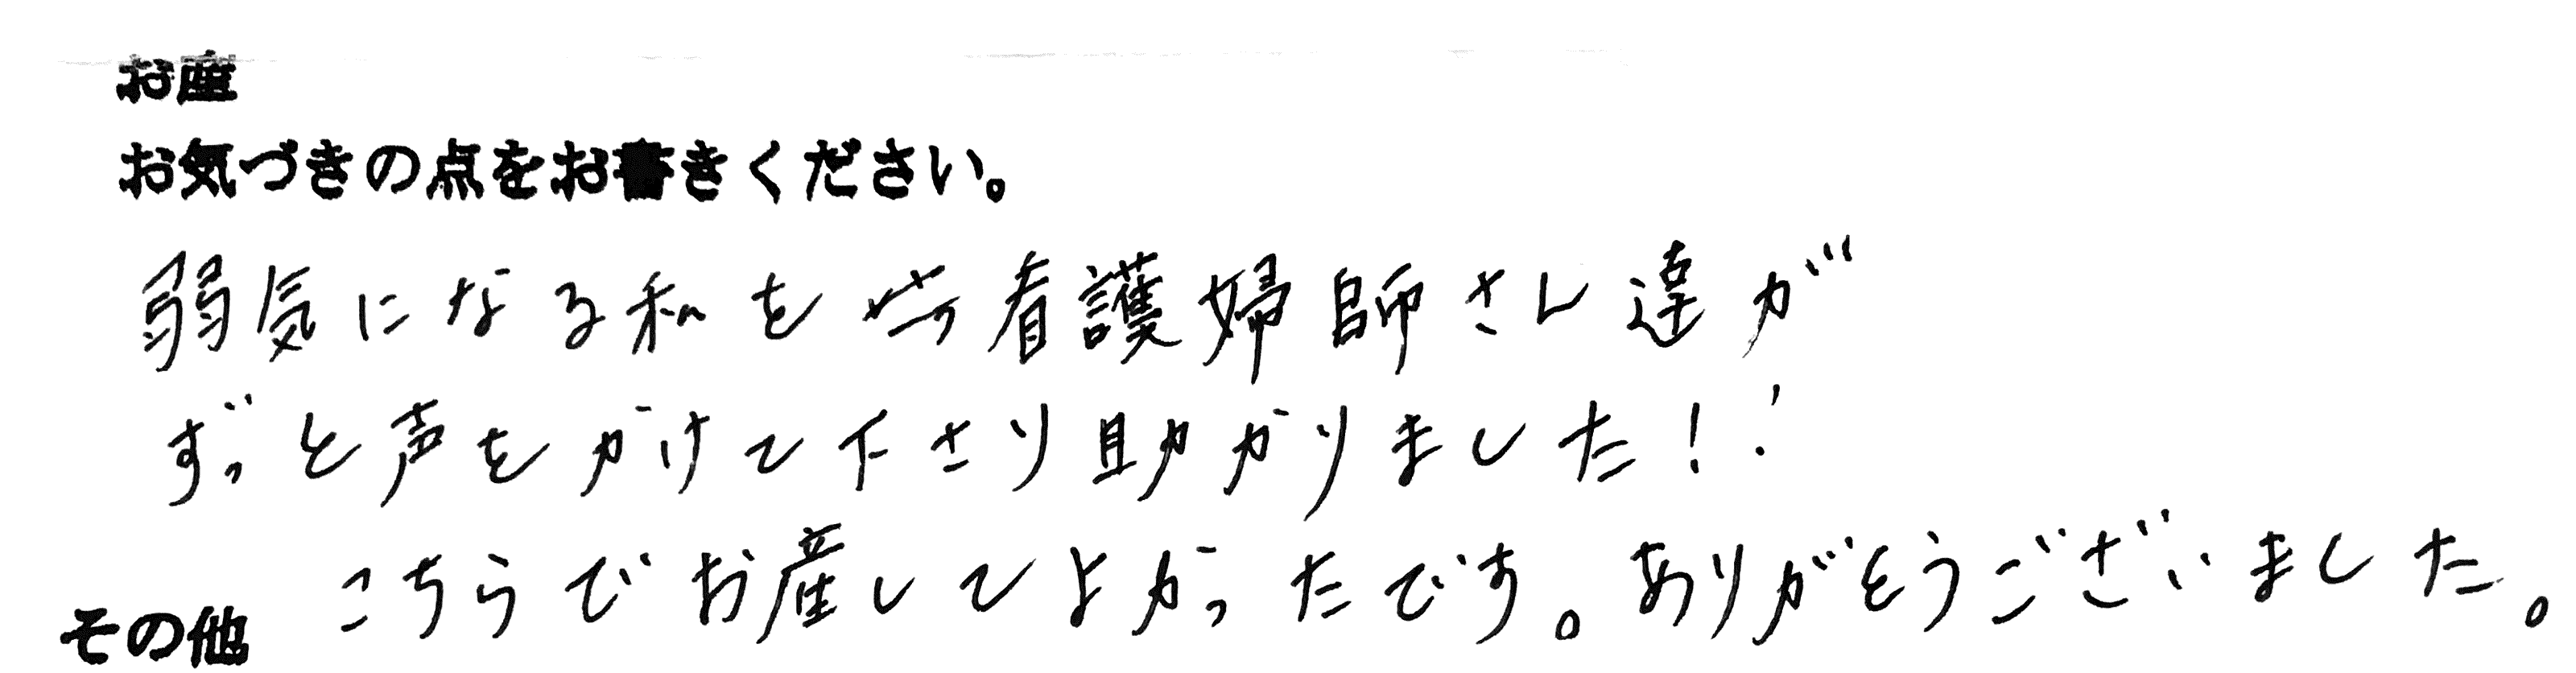 お産
お気づきの点をお書きください。
弱気になる私を 看護婦師さん達が
ずっと声をかけて下さり助かりました！！
こちらでお産してよかったです。ありがとうございました。
その他